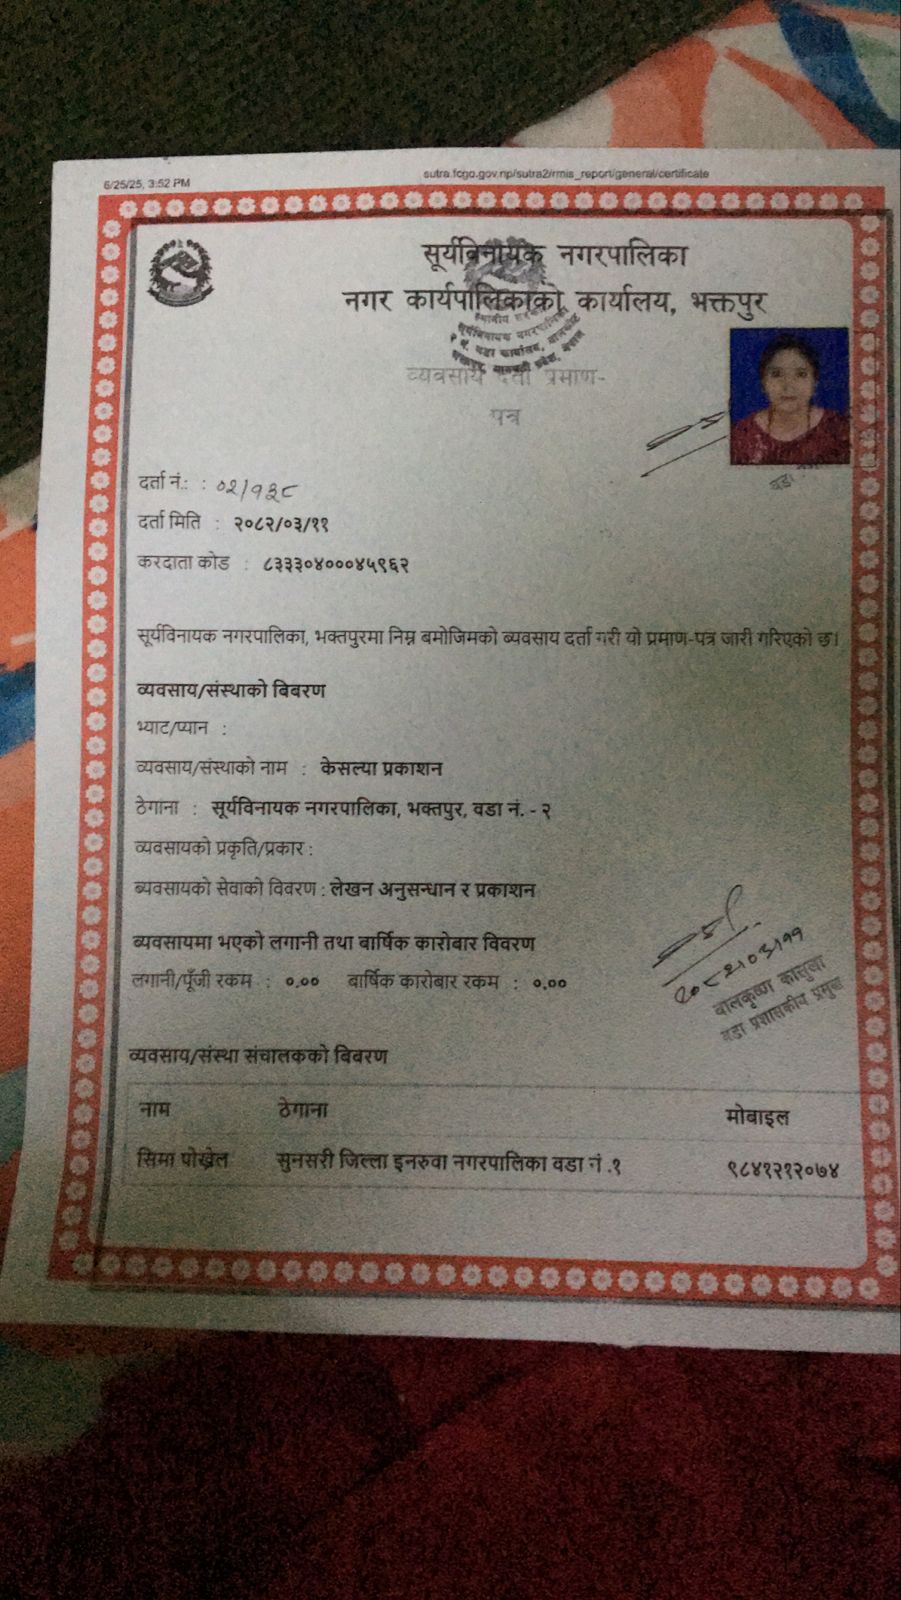 6/25/25, 3:52 PM
sutra.fcgo.gov.np/sutra2/rmis_report/general/certificate
सूर्यविनायक नगरपालिका
नगर कार्यपालिकाको कार्यालय, भक्तपुर
व्यवसाय दर्ता प्रमाण-
पत्र
दर्ता नं.: : ०२/१३८
दर्ता मिति : २०८२/०३/११
करदाता कोड : ८३३३०४०००४५९६२
सूर्यविनायक नगरपालिका, भक्तपुरमा निम्न बमोजिमको ब्यवसाय दर्ता गरी यो प्रमाण-पत्र जारी गरिएको छ।
व्यवसाय/संस्थाको बिबरण
भ्याट/प्यान :
व्यवसाय/संस्थाको नाम : केसल्या प्रकाशन
ठेगाना : सूर्यविनायक नगरपालिका, भक्तपुर, वडा नं. - २
व्यवसायको प्रकृति/प्रकार :
ब्यवसायको सेवाको विवरण : लेखन अनुसन्धान र प्रकाशन
ब्यवसायमा भएको लगानी तथा बार्षिक कारोबार विवरण
लगानी/पूँजी रकम : ०.०० बार्षिक कारोबार रकम : ०.००
२०८२।०३।११
बालकृष्ण
वडा प्रशासकीय प्रमुख
व्यवसाय/संस्था संचालकको बिबरण
नाम ठेगाना मोबाइल
सिमा पोख्रेल सुनसरी जिल्ला इनरुवा नगरपालिका वडा नं .१ ९८४१२१२०७४